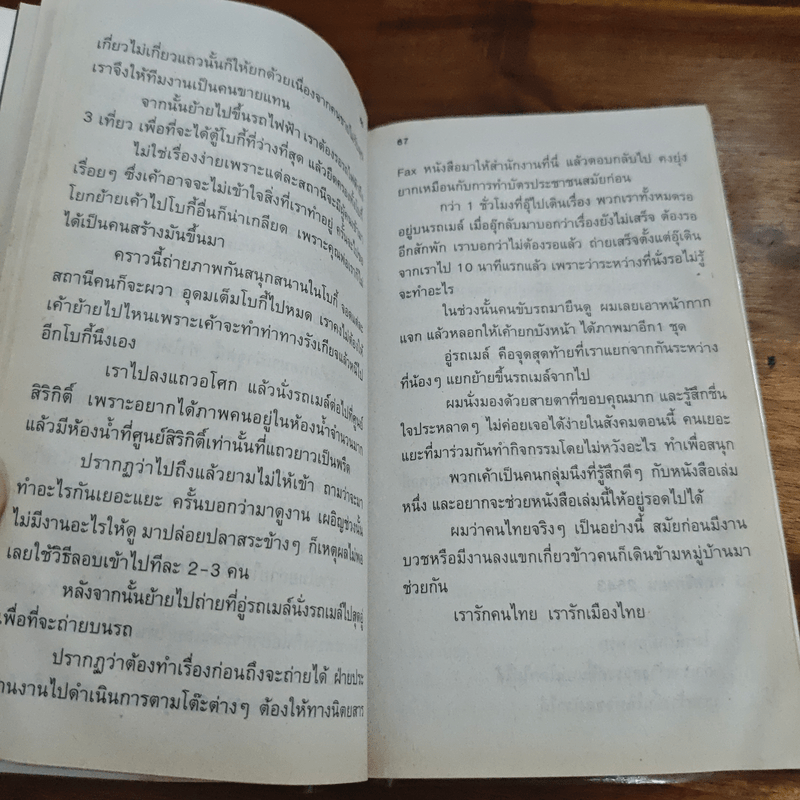 เกี่ยวไม่เกี่ยวแถวนั้นก็ให้ยกด้วยเนื่องจาก
เราจึงให้ทีมงานเป็นคนขายแทน
จากนั้นย้ายไปขึ้นรถไฟฟ้า เราต้อง
3 เที่ยว เพื่อที่จะได้ตู้โบกี้ที่ว่างที่สุด แล้วยึด
ไม่ใช่เรื่องง่ายเพราะแต่ละสถานีจะมี
เรื่อยๆ ซึ่งเค้าอาจจะไม่เข้าใจสิ่งที่เราทำอยู่
โยกย้ายเค้าไปโบกี้อื่นก็น่าเกลียด เพราะคุณ
ได้เป็นคนสร้างมันขึ้นมา
คราวนี้ถ่ายภาพกันสนุกสนานในโบกี้ จอดแต่ละ
สถานีคนก็จะผวา อุดมเต็มโบกี้ไปหมด เราคงไม่ต้องให้
เค้าย้ายไปไหนเพราะเค้าจะทำท่าทางรังเกียจแล้วหนีไป
อีกโบกี้นึงเอง
เราไปลงแถวอโศก แล้วนั่งรถเมล์ต่อไปที่ศูนย์
สิริกิติ์ เพราะอยากได้ภาพคนอยู่ในห้องน้ำจำนวนมาก
แล้วมีห้องน้ำที่ศูนย์สิริกิติ์เท่านั้นที่แถวยาวเป็นพรืด
ปรากฏว่าไปถึงแล้วยามไม่ให้เข้า ถามว่าจะมา
ทำอะไรกันเยอะแยะ ครั้นบอกว่ามาดูงาน เผอิญช่วงนั้น
ไม่มีงานอะไรให้ดู มาปล่อยปลาสระข้างๆ ก็เหตุผลไม่พอ
เลยใช้วิธีลอบเข้าไปทีละ 2-3 คน
หลังจากนั้นย้ายไปถ่ายที่อู่รถเมล์นั่งรถเมล์ไปสุดอู่
เพื่อที่จะถ่ายบนรถ
ปรากฏว่าต้องทำเรื่องก่อนถึงจะถ่ายได้ ฝ่ายประ
านงานไปดำเนินการตามโต๊ะต่างๆ ต้องให้ทางนิตยสาร
67
Fax หนังสือมาให้สำนักงานที่นี่ แล้วตอบกลับไป คงยุ่ง
ยากเหมือนกับการทำบัตรประชาชนสมัยก่อน
กว่า 1 ชั่วโมงที่อู๊ไปเดินเรื่อง พวกเราทั้งหมดรอ
อยู่บนรถเมล์ เมื่ออู๊กลับมาบอกว่าเรื่องยังไม่เสร็จ ต้องรอ
อีกสักพัก เราบอกว่าไม่ต้องรอแล้ว ถ่ายเสร็จตั้งแต่อู๊เดิน
จากเราไป 10 นาทีแรกแล้ว เพราะว่าระหว่างที่นั่งรอไม่รู้
จะทำอะไร
ในช่วงนั้นคนขับรถมายืนดู ผมเลยเอาหน้ากาก
แจก แล้วหลอกให้เค้ายกบังหน้า ได้ภาพมาอีก1 ชุด
อู่รถเมล์ คือจุดสุดท้ายที่เราแยกจากกันระหว่าง
ที่น้องๆ แยกย้ายขึ้นรถเมล์จากไป
ผมนั่งมองด้วยสายตาที่ขอบคุณมาก และรู้สึกชื่น
ใจประหลาดๆ ไม่ค่อยเจอได้ง่ายในสังคมตอนนี้ คนเยอะ
แยะที่มาร่วมกันทำกิจกรรมโดยไม่หวังอะไร ทำเพื่อสนุก
พวกเค้าเป็นคนกลุ่มนึงที่รู้สึกดีๆ กับหนังสือเล่ม
หนึ่ง และอยากจะช่วยหนังสือเล่มนี้ให้อยู่รอดไปได้
ผมว่าคนไทยจริงๆ เป็นอย่างนี้ สมัยก่อนมีงาน
บวชหรือมีงานลงแขกเกี่ยวข้าวคนก็เดินข้ามหมู่บ้านมา
ช่วยกัน
เรารักคนไทย เรารักเมืองไทย